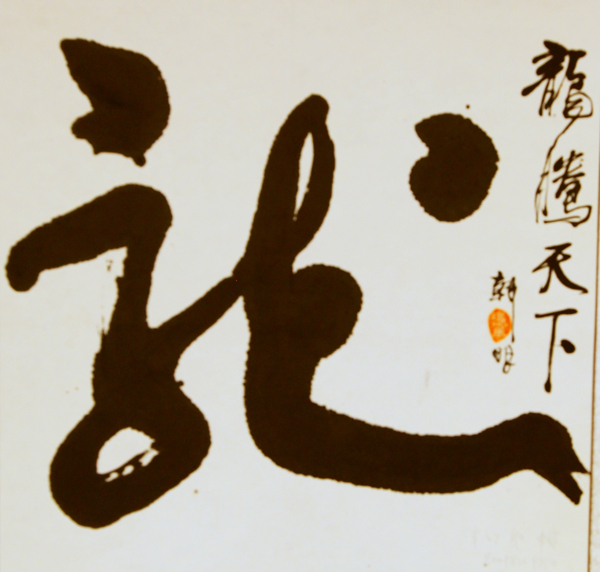 龍
龍騰天下
朝明